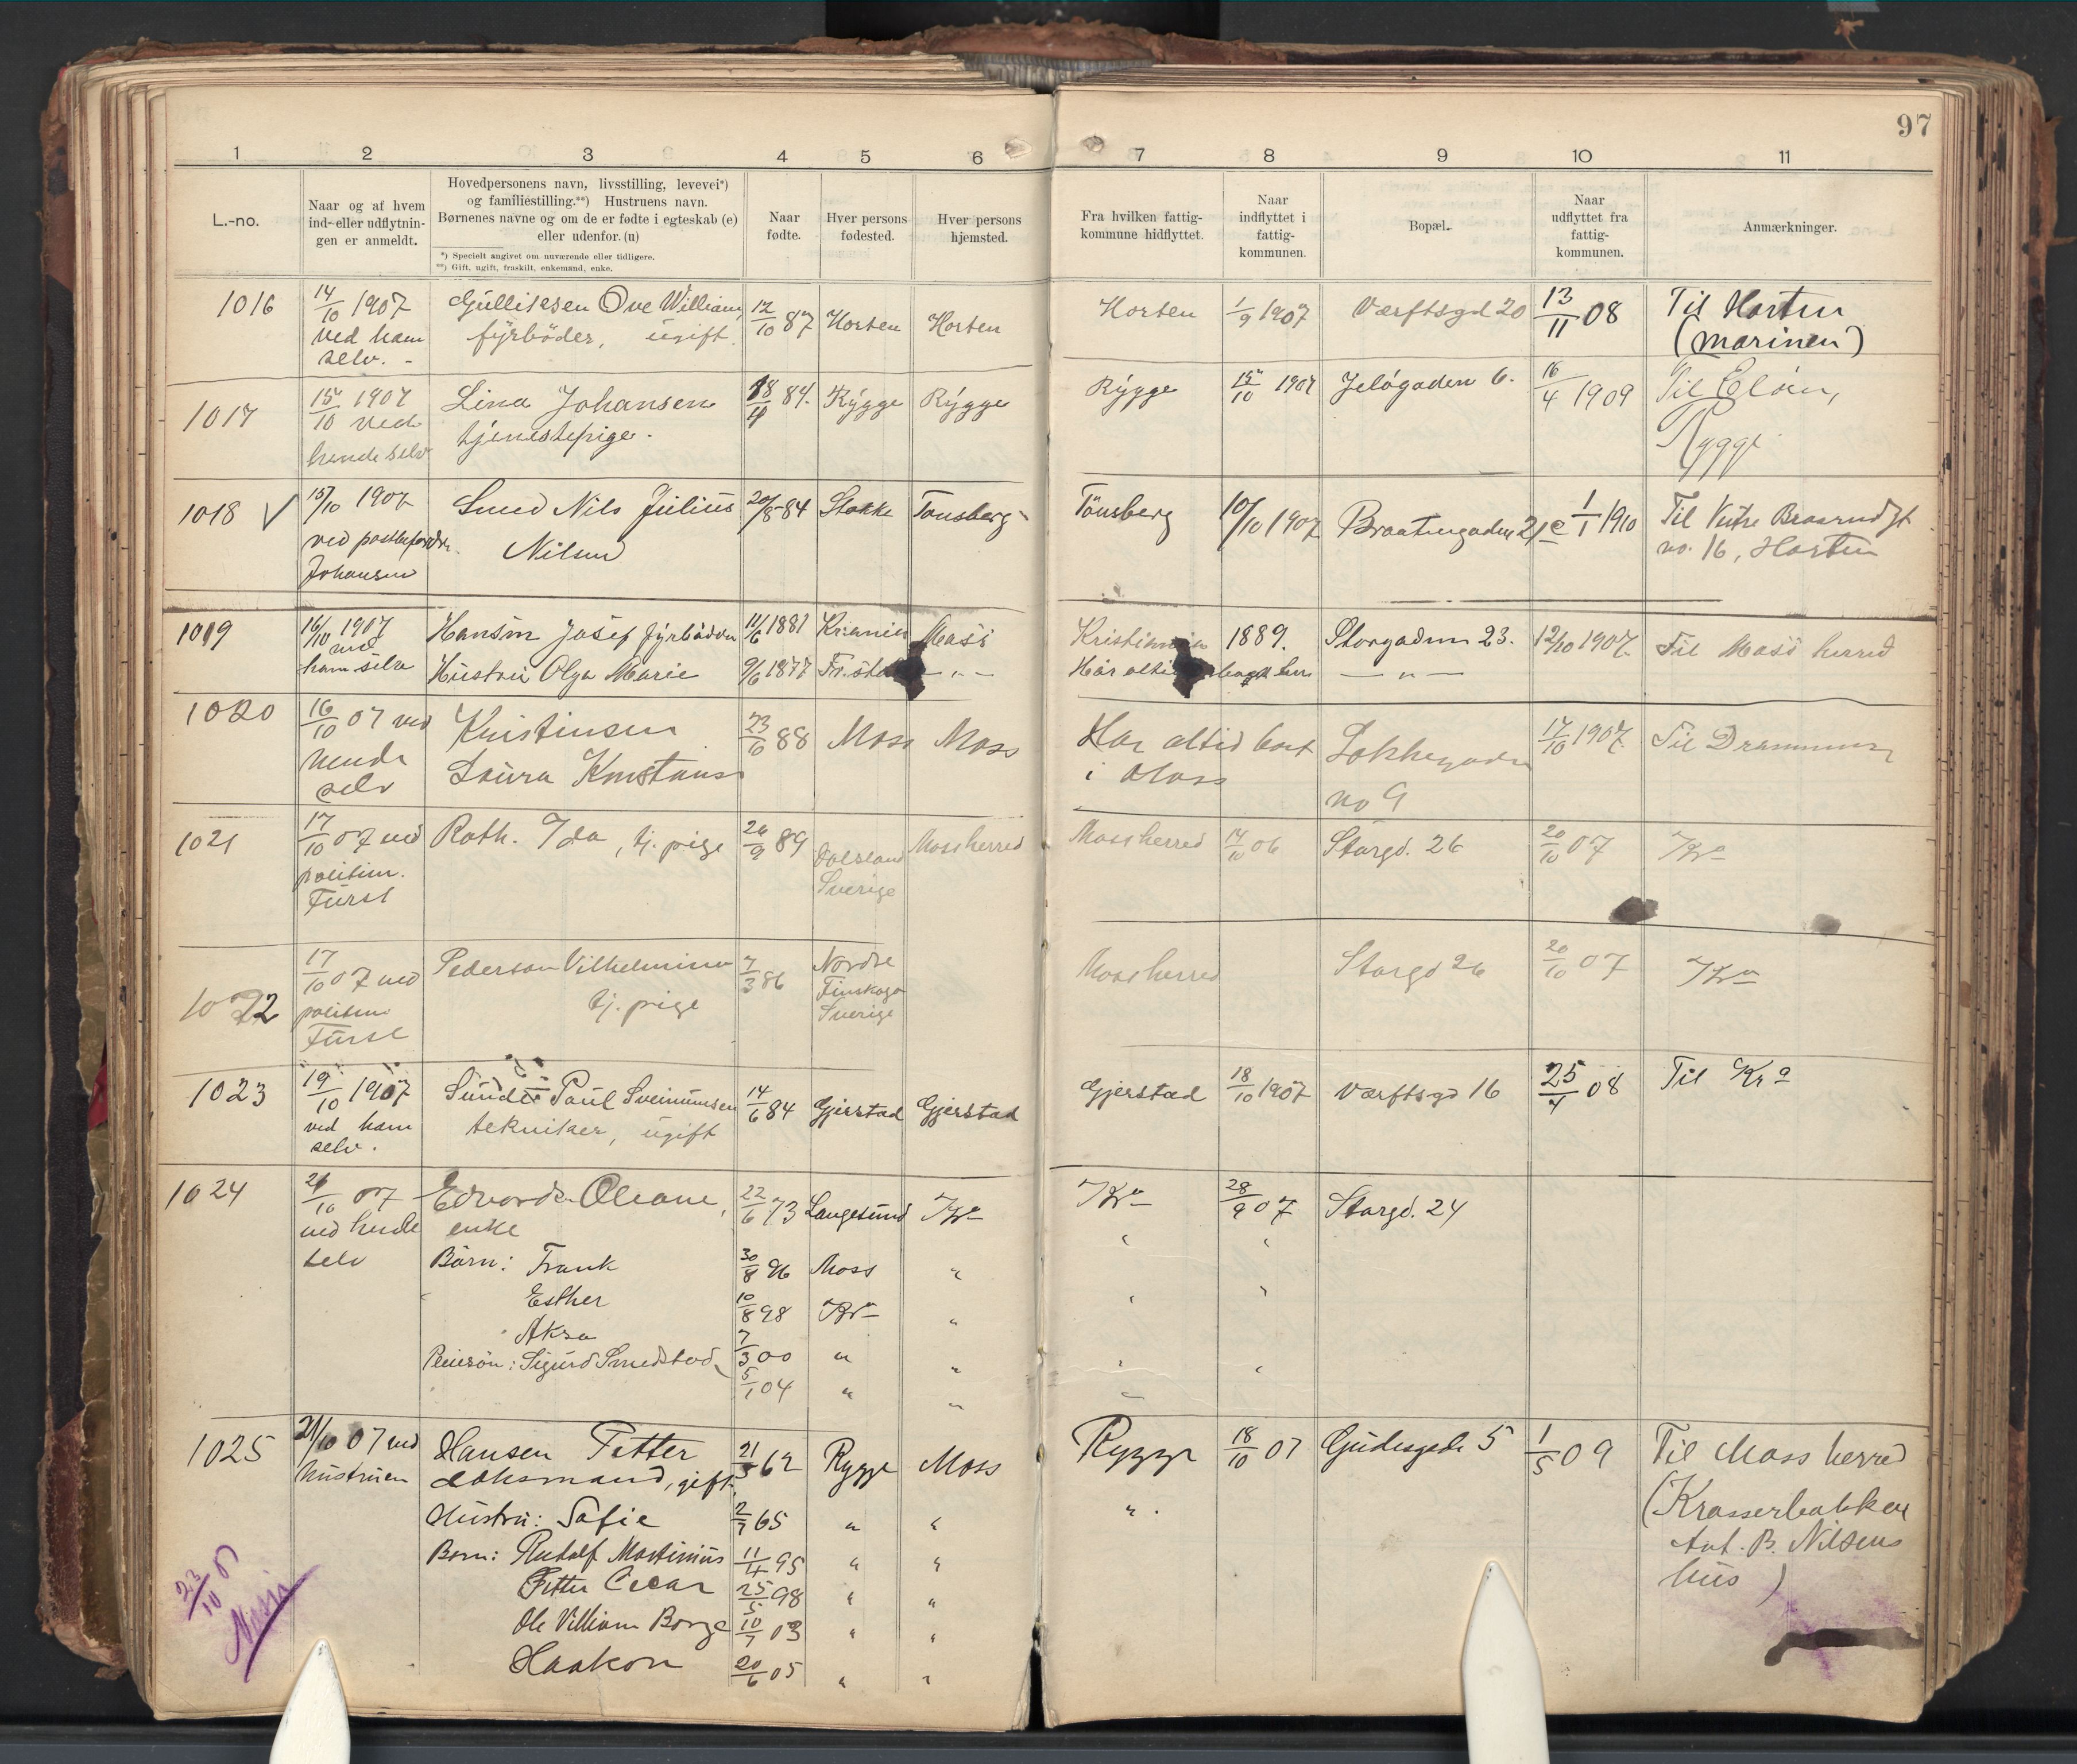 97
1 2 3 4 5 6 7 8 9 10 11
L.-no.
Naar og af hvem
ind- eller udflytnin-
gen er anmeldt.
Hovedpersonens navn, livsstilling, levevei*)
og familiestilling.**) Hustruens navn.
Børnenes navne og om de er fødte i egteskab (e)
eller udenfor. (u)
*) Specielt angivet om nuværende eller tidligere.
**) Gift, ugift, fraskilt, enkemand, enke.
Naar
fødte.
Hver persons
fødested.
Hver persons
hjemsted.
Fra hvilken fattig-
kommune hidflyttet.
Naar
indflyttet i
fattig-
kommunen.
Bopæl.
Naar
udflyttet fra
fattig-
kommunen.
Anmærkninger.
1016 14/10 1907 Gulliksen Ove William, 12/10 87 Horten Horten Horten 1/9 1907 Værftsgd 20 13/11 08 Til Horten
ved ham fyrbøder, ugift. (marinen)
selv. -
1017 15/10 1907 Lina Johansen 84. Rygge Rygge Rygge 15/10 1907 Jeløgaden 6. 16/4 1909 Til
ved tjenestepige. Rygge
hende selv
1018 15/10 1907 Nils Julius 20/8 84 Stokke Tønsberg Tønsberg 10/10 1907 Braatengaden 21c 1/1 1910 Til
ved Nilsen no. 16, Horten
Johansen
1019 16/10 1907 Hansen Josef fyrbøder 11/6 1881 Moss Kristiania 1889. Storgaden 23. 12/10 1907 Til Moss herred
ved
ham selv Hustru Olga Marie 9/6 1877 — „ — Har altid her — „ —
1020 16/10 07 ved Kristinsen 23/6 88 Moss Moss Har altid boet 17/10 1907 Til Drammen
hende Laura i Moss no 9
selv
1021 17/10 07 ved Roth. Ida, tj. pige 89 Dalsland Moss herred Moss herred 14/10 06 Storgd. 26 20/10 07 Kra
politim. Sverige
Fürst
1022 17/10 07 ved Pederson Vilhelmina 7/3 86 Nordre Moss herred Storgd 26 20/10 07 Kra
politim. tj. pige Finskoga
Fürst Sverige
1023 19/10 1907 Paul 14/6 84 Gjerstad Gjerstad Gjerstad 18/10 1907 Værftsgd 16 25/4 08 Til Kra
ved ham tekniker, ugift
selv.
1024 21/10 07 Oleane, 22/6 73 Langesund Kra Kra 28/9 07 Storgd. 24
ved hende enke
selv Børn: Frank 30/8 96 Moss "
Esther 10/8 98 Kra "
7/3 00 " "
Pleiesøn: Sigurd Smedstad 5/1 04 " "
1025 21/10 07 ved Hansen Petter 62 Rygge Moss Rygge 18/10 07 Gudesgade 5 1/5 09 Til Moss herred
hustruen gift. (Krosserbakken
Hustru: Sofie 2/7 65 " " " Ant. B. Nilsens
Børn: Rudolf Martinius 11/4 95 " " hus)
Petter Oscar 25/5 98 " "
Ole Villiam Borge 10/7 03 " "
Haakon 20/6 05 " "
23/10